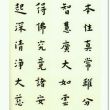 本住真常
智慧廣大如
得佛究竟
起深清淨大